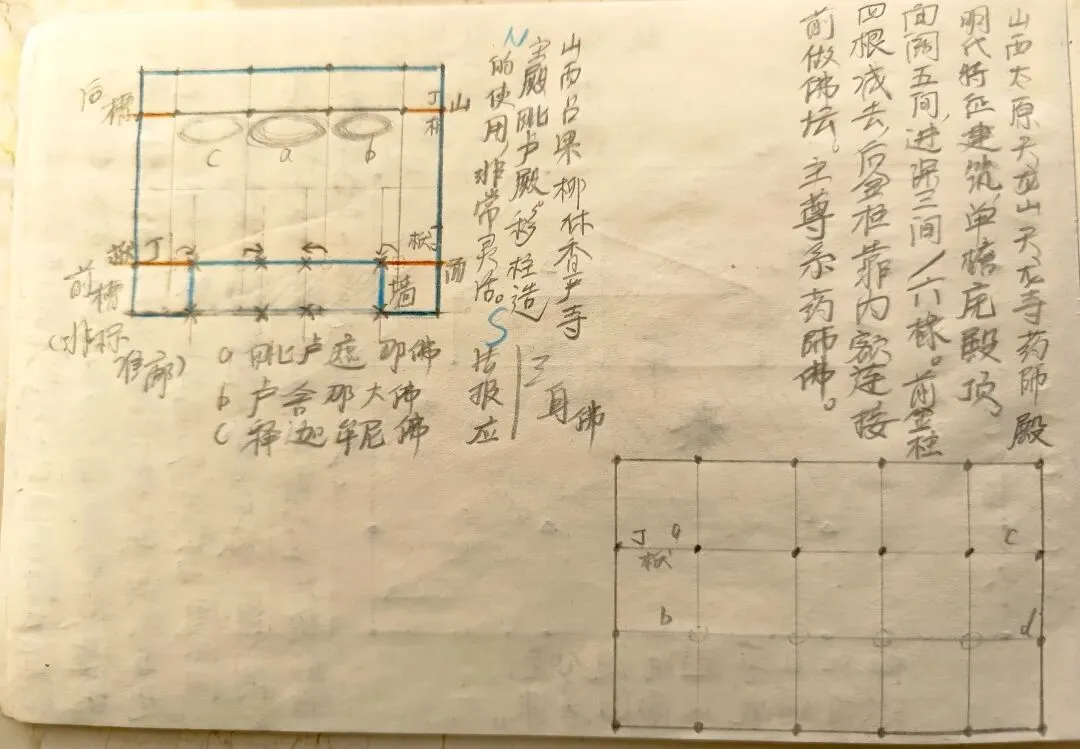 山西太原天龙山天龙寺药师殿
明代特征建筑,单檐庑殿顶,
间阔五间,进深三间/六椽。前金柱
四根减去,后金柱靠内额连接
前做佛坛。主尊系药师佛。
山西吕梁柳林香严寺
毗卢殿。移柱造
的使用,非常灵活。
N
后
槽
丁
山
c
a
b
丁
栿
前
槽
墙
面
S
a 毗卢遮那佛
b 卢舍那大佛
c 释迦牟尼佛
法报应
三身佛
丁
栿
a
c
b
d